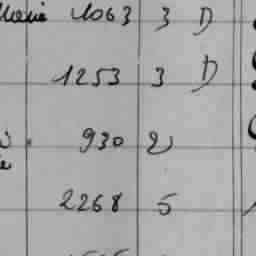 1063 3 D
1253 3 D
930 2
2268 5